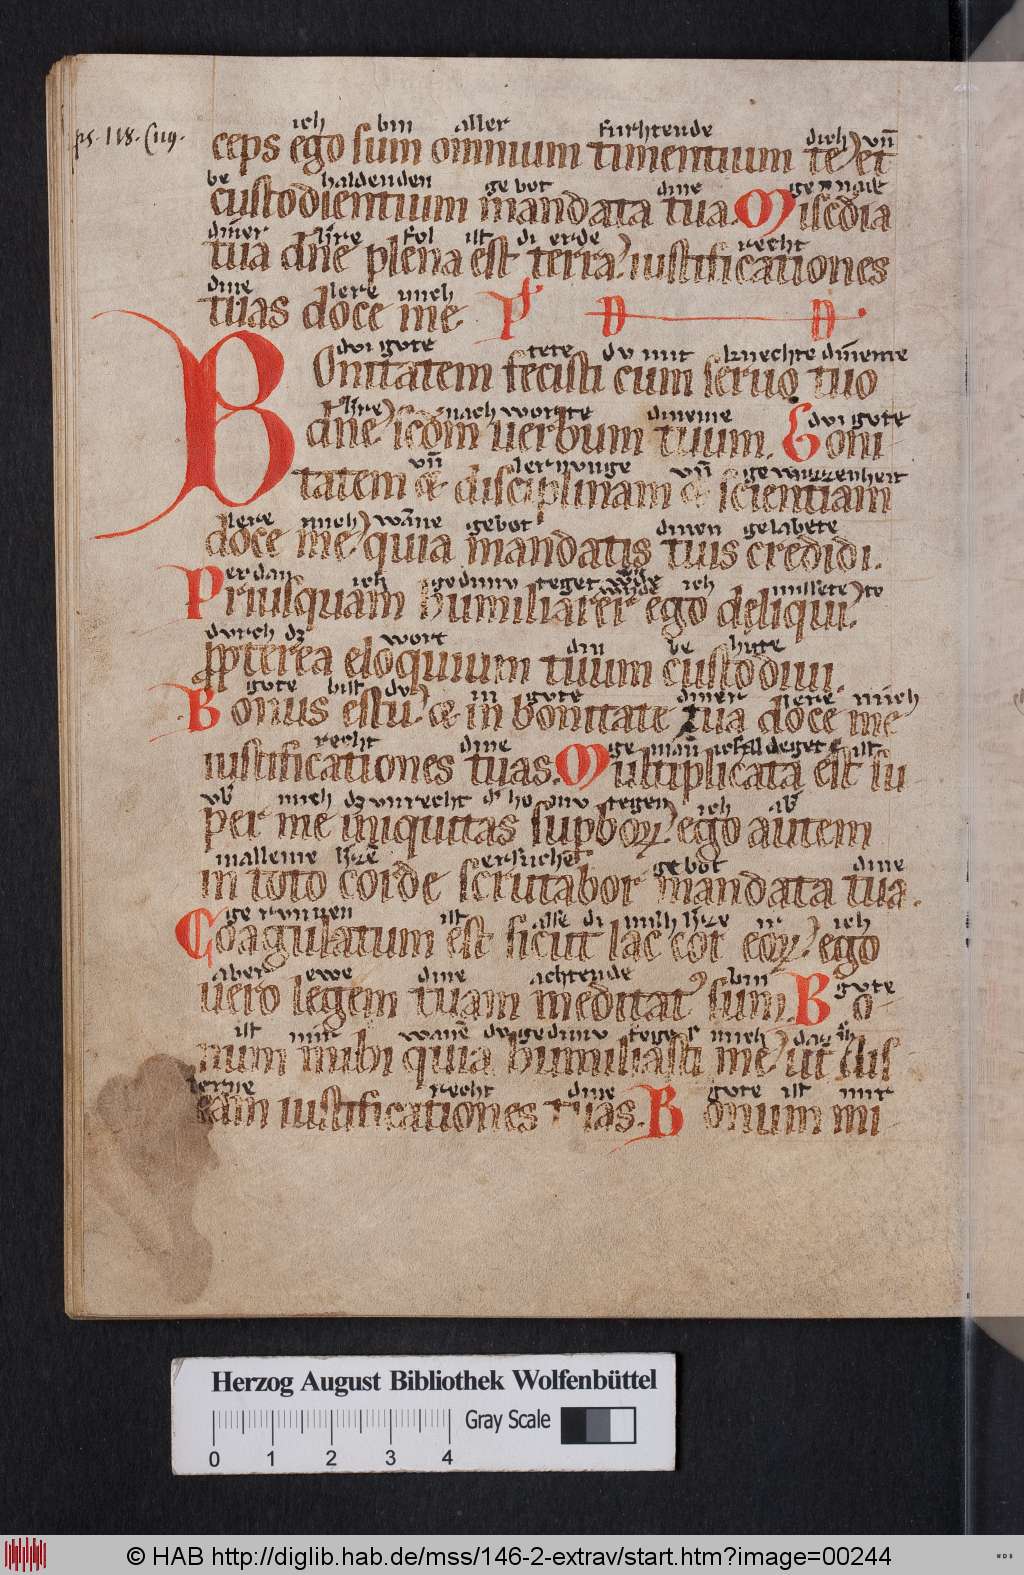 ps. 118.
ich bin aller furhtende dich vn̄
ceps ego sum omnium timentium te et
be haldenden gebot dine
custodientium mandata tua. Mis̄c̄dia
diner h're fol ist di erde recht
tua dn̄e plena est terra. iustificationes
dine lere mich
tuas doce me
di gvte tete dv mit knechte dineme
Bonitatem fecisti cum seruo tuo
h're nach worte dineme di gvte
dn̄e sc̄dm uerbum tuum. Boni
vn̄ lernvnge vn̄ gewizzenheit
tatem & disciplinam & scientiam
lere mich wāne gebot dinen gelabete
doce me quia mandatis tuis credidi.
er dan ich gedimv teget ich missete
Priusquam humiliarer ego deliqui.
dvrch wort din be hvte
propterea eloquium tuum custodiui.
gvte bist dv in gvte diner lere mich
Bonus es tu. & in bonitate tua doce me
recht dine ist
iustificationes tuas. Multiplicata est su
mich vnrecht ich
per me iniquitas supboꝝ ego autem
malleme gebot dine
in toto corde scrutabor mandata tua.
ge rvnnen ist alse di ich
Coagulatum est sicut lac cor eoꝝ ego
aber ewe dine achtende bin gvte
uero legem tuam meditat᷒ sum. Bo
ist mir wanē dv gedimv mich
num mihi quia humiliasti me ut dis
lerne recht dine gvte ist mir
cam iustificationes tuas. Bonum mi
Herzog August Bibliothek Wolfenbüttel
Gray Scale
0 1 2 3 4
© HAB http://diglib.hab.de/mss/146-2-extrav/start.htm?image=00244